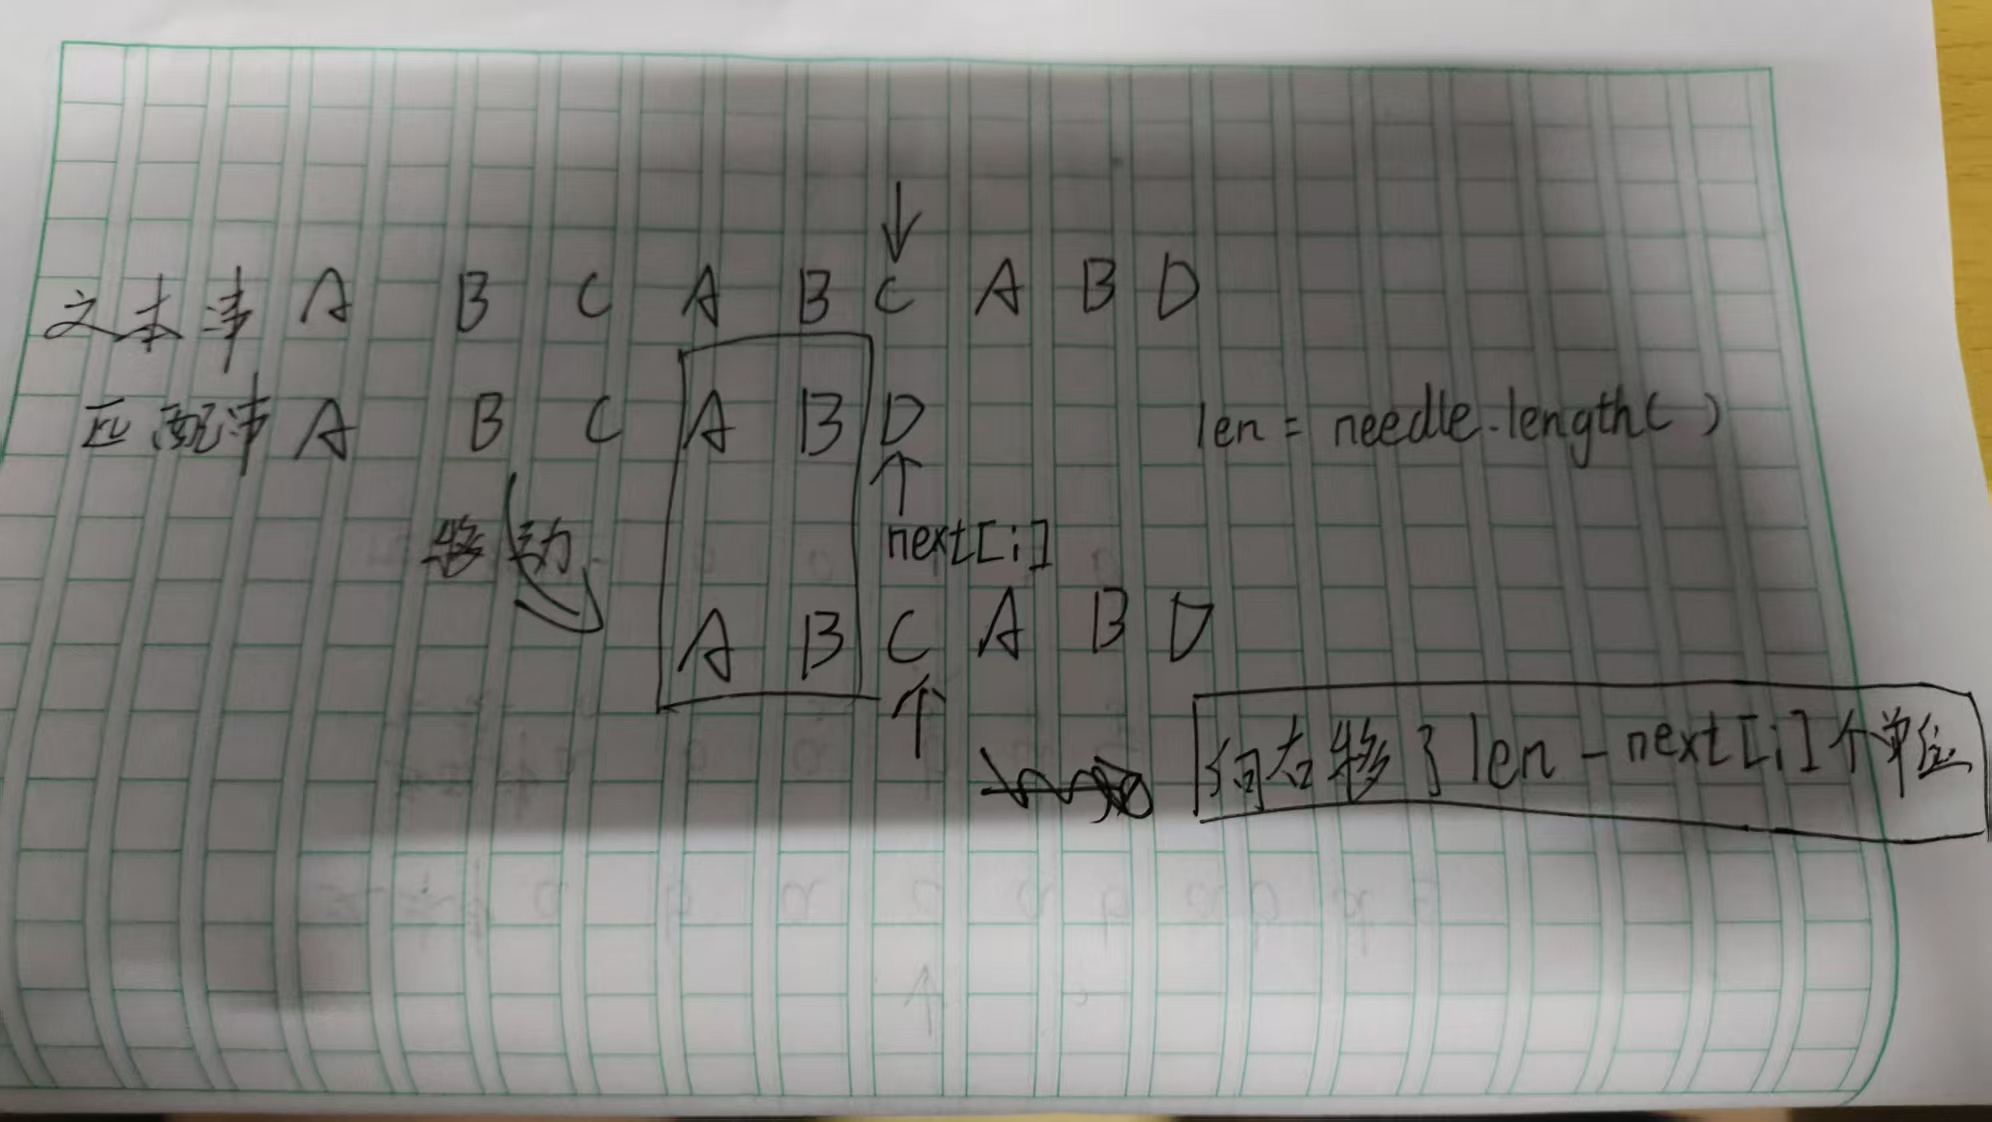 文本串 A B C A B C A B D
匹配串 A B C A B D len = needle.length()
移动 next[i]
A B C A B D
向右移了 len - next[i] 个单位